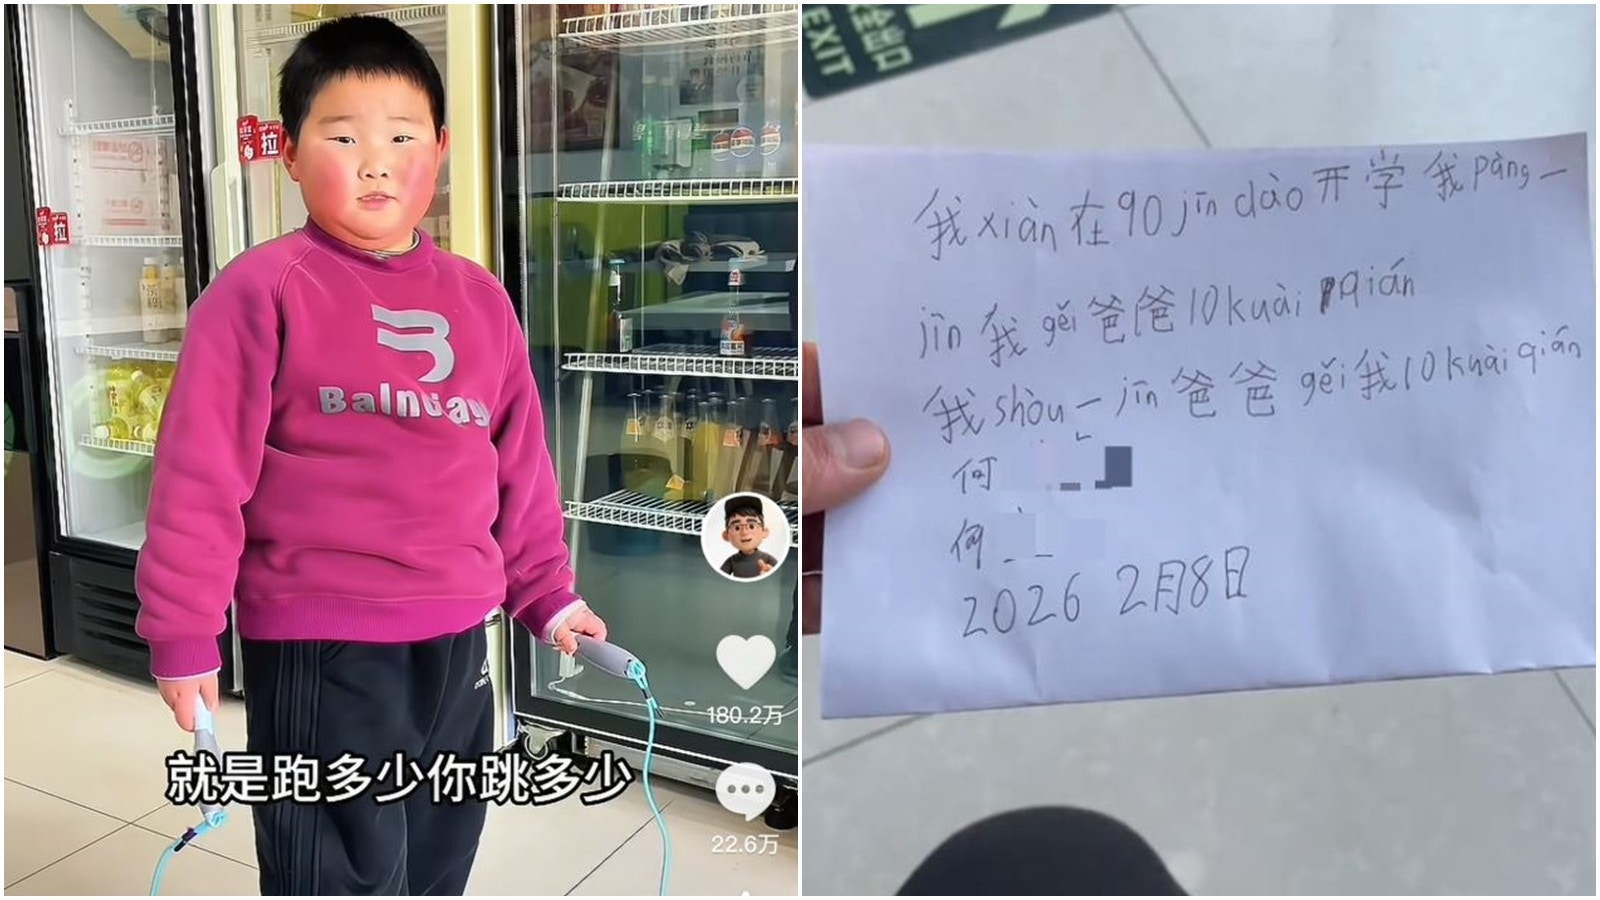 拉
拉
Balnuag
就是跑多少你跳多少
180.2万
22.6万
安全出口
EXIT
我xiàn在90jīn dào开学我pàng一
jīn我gěi爸爸10kuài qián
我shòu一jīn爸爸gěi我10kuài qián
何
何
2026 2月8日